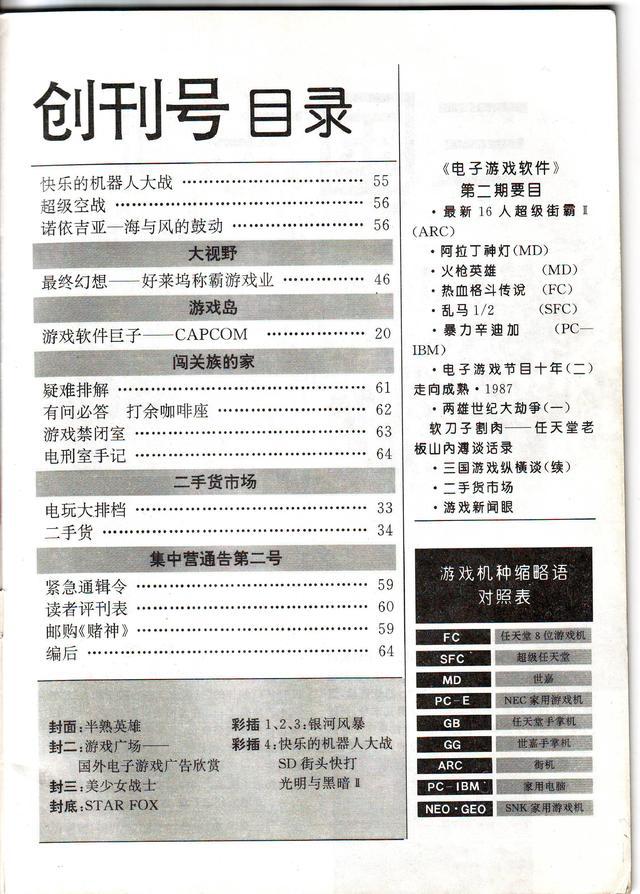 创刊号 目录
快乐的机器人大战 ………………………… 55
超级空战 ………………………… 56
诺依吉亚—海与风的鼓动 ………………………… 56
大视野
最终幻想——好莱坞称霸游戏业 ………………………… 46
游戏岛
游戏软件巨子——CAPCOM ………………………… 20
闯关族的家
疑难排解 ………………………… 61
有问必答 打余咖啡座 ………………………… 62
游戏禁闭室 ………………………… 63
电刑室手记 ………………………… 64
二手货市场
电玩大排档 ………………………… 33
二手货 ………………………… 34
集中营通告第二号
紧急通辑令 ………………………… 59
读者评刊表 ………………………… 60
邮购《赌神》 ………………………… 59
编后 ………………………… 64
封面:半熟英雄
封二:游戏广场——
国外电子游戏广告欣赏
封三:美少女战士
封底:STAR FOX
彩插 1、2、3:银河风暴
彩插 4:快乐的机器人大战
SD 街头快打
光明与黑暗 Ⅱ
《电子游戏软件》
第二期要目
·最新 16 人超级街霸 Ⅱ
(ARC)
·阿拉丁神灯(MD)
·火枪英雄 (MD)
·热血格斗传说 (FC)
·乱马 1/2 (SFC)
·暴力辛迪加 (PC—
IBM)
·电子游戏节目十年(二)
走向成熟·1987
·两雄世纪大劫争(一)
软刀子割肉——任天堂老
板山内溥谈话录
·三国游戏纵横谈(续)
·二手货市场
·游戏新闻眼
游戏机种缩略语
对照表
FC 任天堂 8 位游戏机
SFC 超级任天堂
MD 世嘉
PC-E NEC 家用游戏机
GB 任天堂手掌机
GG 世嘉手掌机
ARC 街机
PC-IBM 家用电脑
NEO·GEO SNK 家用游戏机